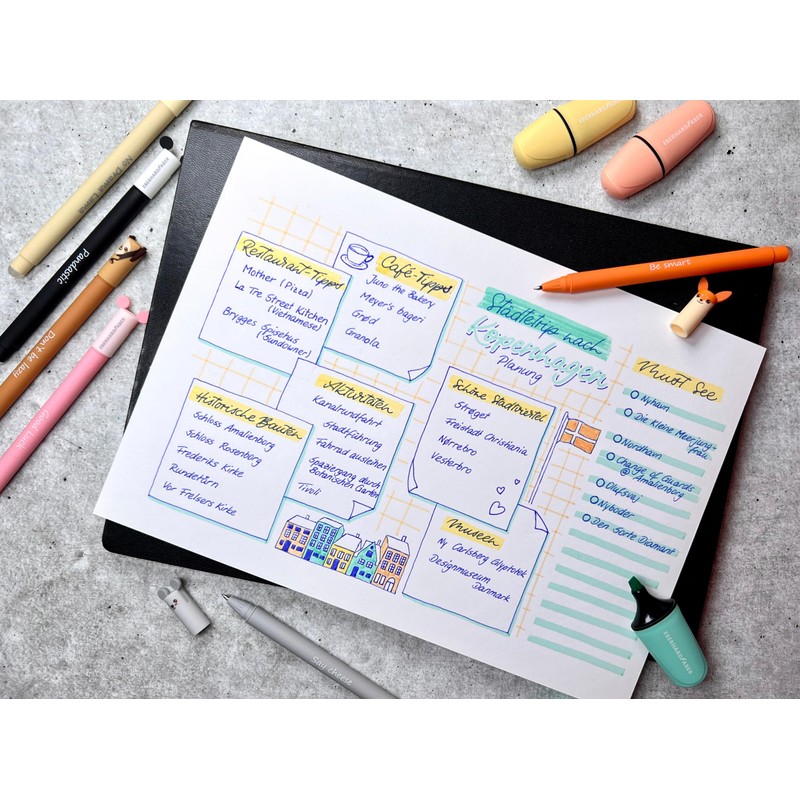 Städtetrip nach
Kopenhagen
Planung
Restaurant-Tipps
Mother (Pizza)
La Tre Street Kitchen
(Vietnamese)
Brygges Spisehus
(Sundowner)
Café-Tipps
Juno the Bakery
Meyer's bageri
Grød
Granola
Historische Bauten
Schloss Amalienberg
Schloss Rosenberg
Frederiks Kirke
Rundetårn
Vor Frelsers Kirke
Aktivitäten
Kanalrundfahrt
Stadtführung
Fahrrad ausleihen
Spaziergang durch
Botanischen Garten
Tivoli
Schöne Stadtviertel
Strøget
Freistadt Christiania
Nørrebro
Vesterbro
Museen
Ny Carlsberg Glyptotek
Designmuseum
Danmark
Must See
Nyhavn
Die kleine Meerjung-
frau
Nordhavn
Change of Guards
@ Amalienberg
Olufsvej
Nyboder
Den Sorte Diamant
No Drama Llama
Pandastic
EBERHARD FABER
Don't be lazy
Good Luck
Be smart
Say cheese
EBERHARD FABER
EBERHARD FABER
EBERHARD FABER